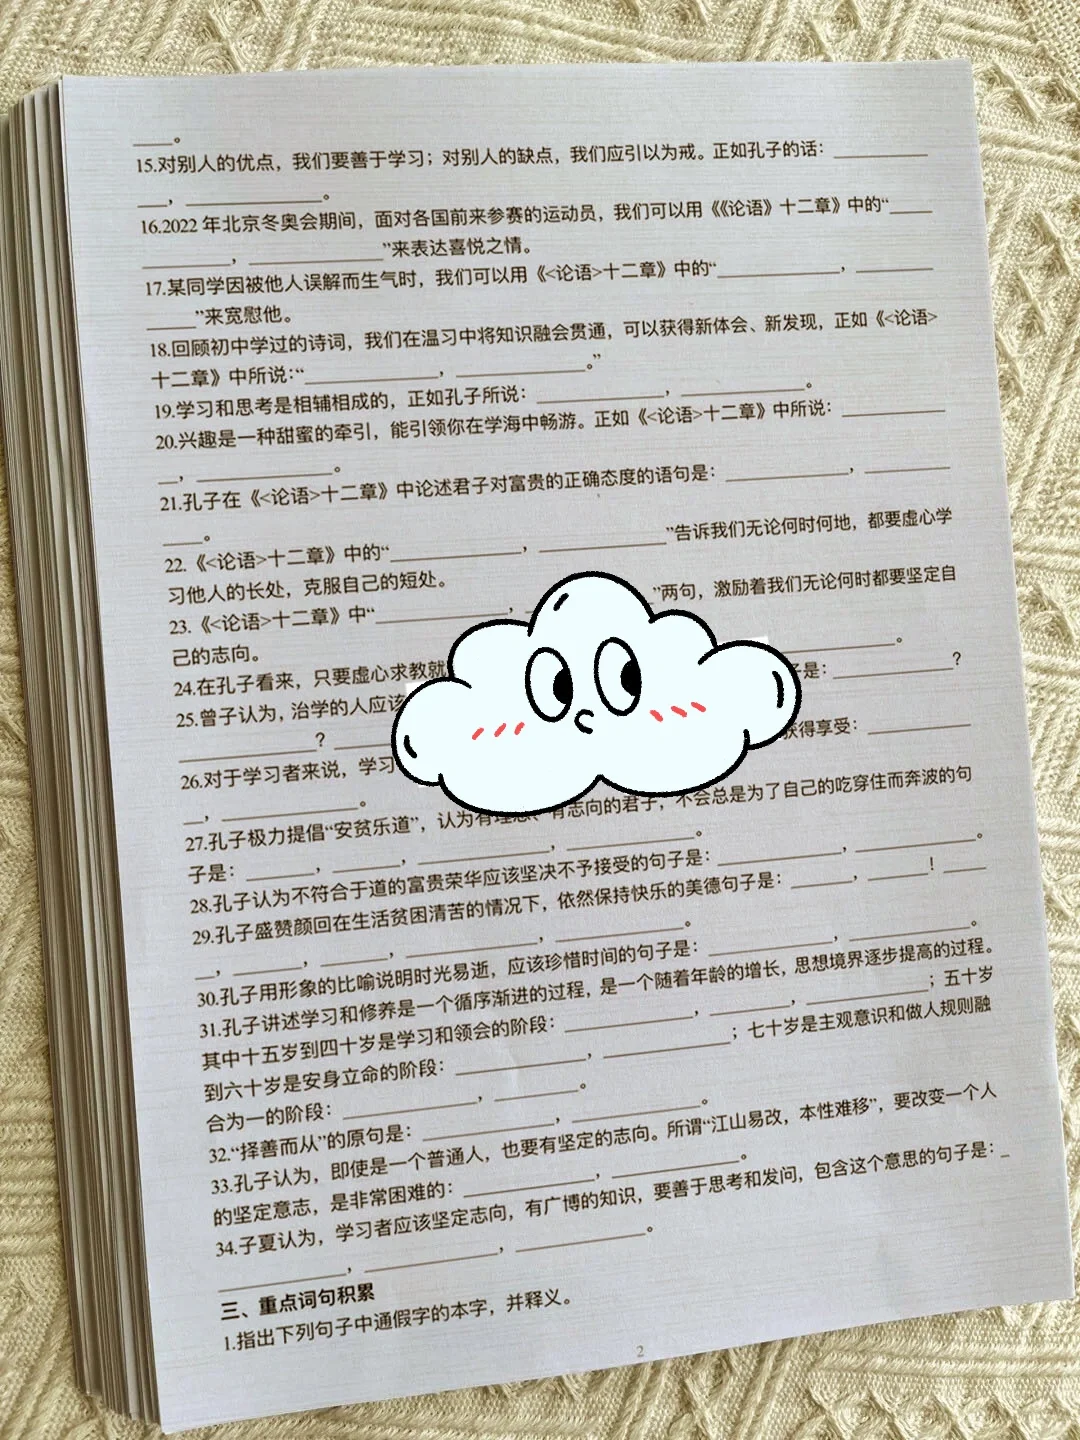 ____。
15.对别人的优点，我们要善于学习；对别人的缺点，我们应引以为戒。正如孔子的话：__________
___，______________。
16.2022 年北京冬奥会期间，面对各国前来参赛的运动员，我们可以用《《论语》十二章》中的“____
_________，______________”来表达喜悦之情。
17.某同学因被他人误解而生气时，我们可以用《<论语>十二章》中的“_____________，________
_____”来宽慰他。
18.回顾初中学过的诗词，我们在温习中将知识融会贯通，可以获得新体会、新发现，正如《<论语>
十二章》中所说：“______________，______________。”
19.学习和思考是相辅相成的，正如孔子所说：_____________，______________。
20.兴趣是一种甜蜜的牵引，能引领你在学海中畅游。正如《<论语>十二章》中所说：___________
__，______________。
21.孔子在《<论语>十二章》中论述君子对富贵的正确态度的语句是：_____________，_________
____。
22.《<论语>十二章》中的“______________，_____________”告诉我们无论何时何地，都要虚心学
习他人的长处，克服自己的短处。
23.《<论语>十二章》中“______________，”两句，激励着我们无论何时都要坚定自
己的志向。
24.在孔子看来，只要虚心求教就 __________。
25.曾子认为，治学的人应该 子是：_____________？
______________？____
26.对于学习者来说，学习 获得享受：___________
__，______________。
27.孔子极力提倡“安贫乐道”，认为有理想、有志向的君子，不会总是为了自己的吃穿住而奔波的句
子是：_______，_______，______________，_____________。
28.孔子认为不符合于道的富贵荣华应该坚决不予接受的句子是：_____________，_____________。
29.孔子盛赞颜回在生活贫困清苦的情况下，依然保持快乐的美德句子是：______，______！____
__，_______，_______，______________，______________。
30.孔子用形象的比喻说明时光易逝，应该珍惜时间的句子是：_____________，_____________。
31.孔子讲述学习和修养是一个循序渐进的过程，是一个随着年龄的增长，思想境界逐步提高的过程。
其中十五岁到四十岁是学习和领会的阶段：_____________，_____________，_____________；五十岁
到六十岁是安身立命的阶段：______________，______________；七十岁是主观意识和做人规则融
合为一的阶段：______________，_________。
32.“择善而从”的原句是：______________，______________。
33.孔子认为，即使是一个普通人，也要有坚定的志向。所谓“江山易改，本性难移”，要改变一个人
的坚定意志，是非常困难的：______________，______________。
34.子夏认为，学习者应该坚定志向，有广博的知识，要善于思考和发问，包含这个意思的句子是：_
_____________，______________，______________。
三、重点词句积累
1.指出下列句子中通假字的本字，并释义。
2